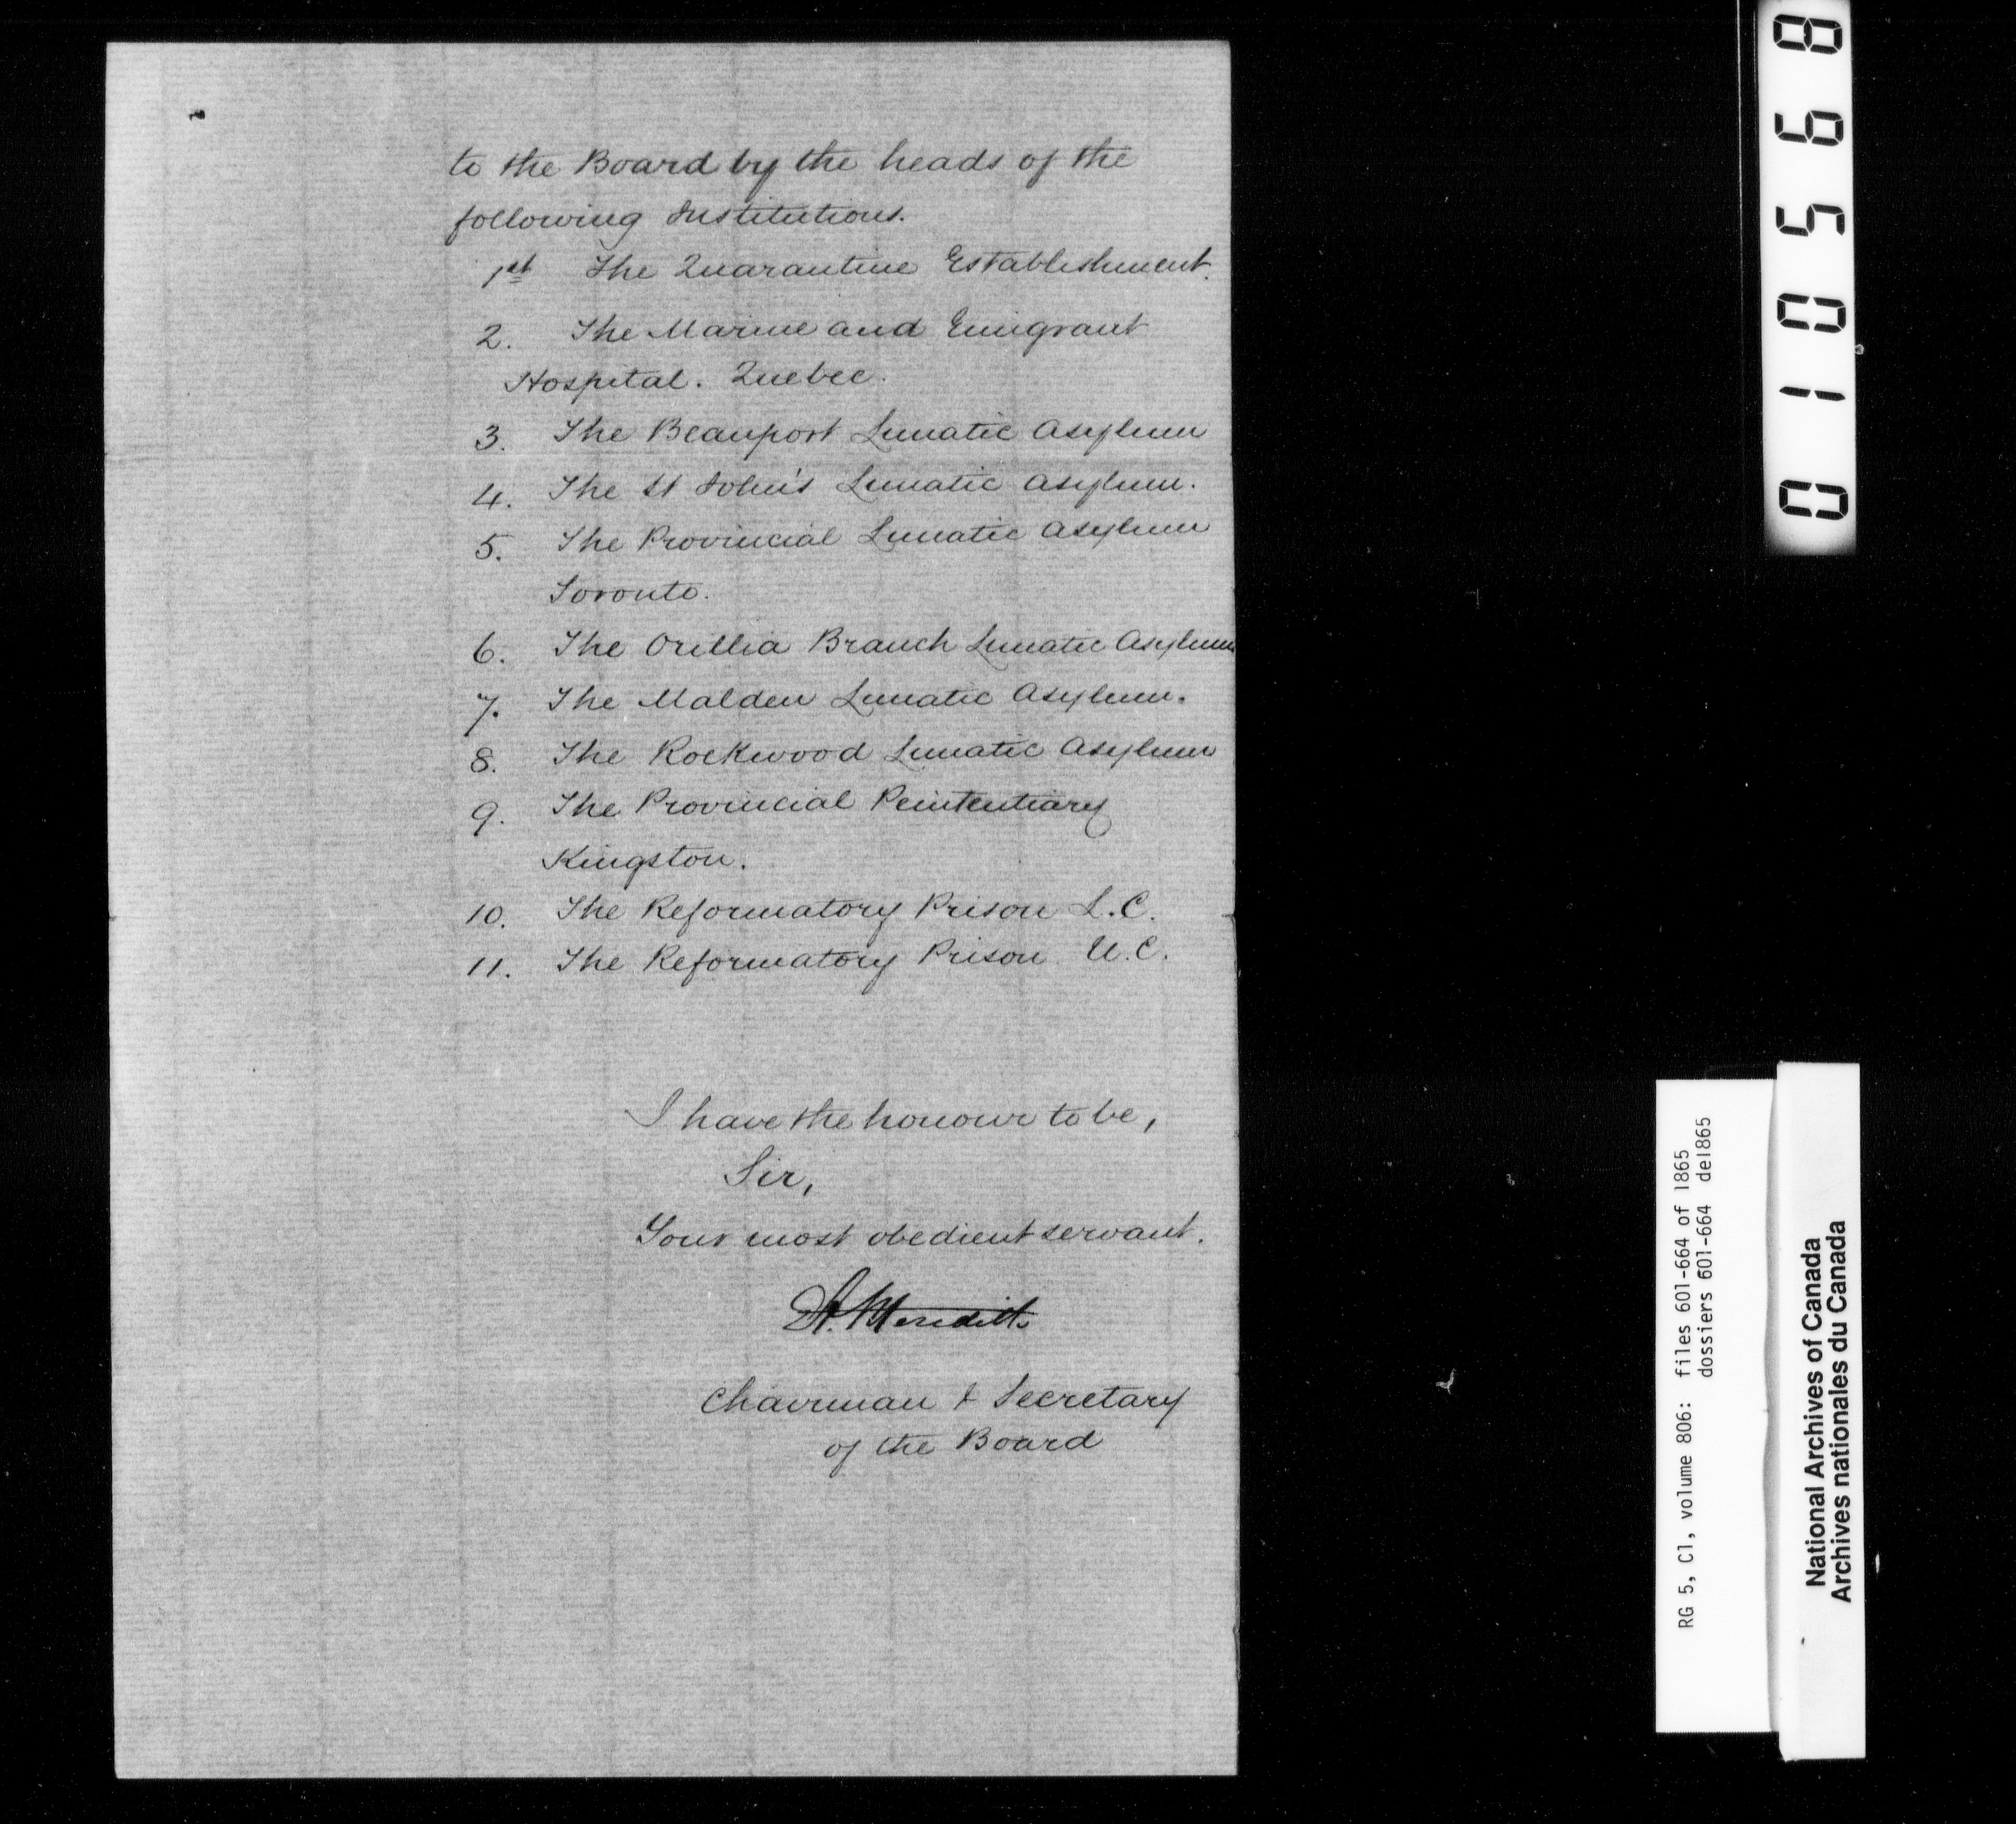 to the Board by the heads of the
following Institutions.
1st The Quarantine Establishment.
2. The Marine and Emigrant
Hospital. Quebec.
3. The Beauport Lunatic Asylum
4. The St John's Lunatic Asylum.
5. The Provincial Lunatic Asylum
Toronto.
6. The Orillia Branch Lunatic Asylum
7. The Malden Lunatic Asylum.
8. The Rockwood Lunatic Asylum
9. The Provincial Penitentiary
Kingston.
10. The Reformatory Prison L.C.
11. The Reformatory Prison U.C.
I have the honour to be,
Sir,
Your most obedient servant.
Meredith
Chairman & Secretary
of the Board
010568
RG 5, C1, volume 806: files 601-664 of 1865
dossiers 601-664 de1865
National Archives of Canada
Archives nationales du Canada